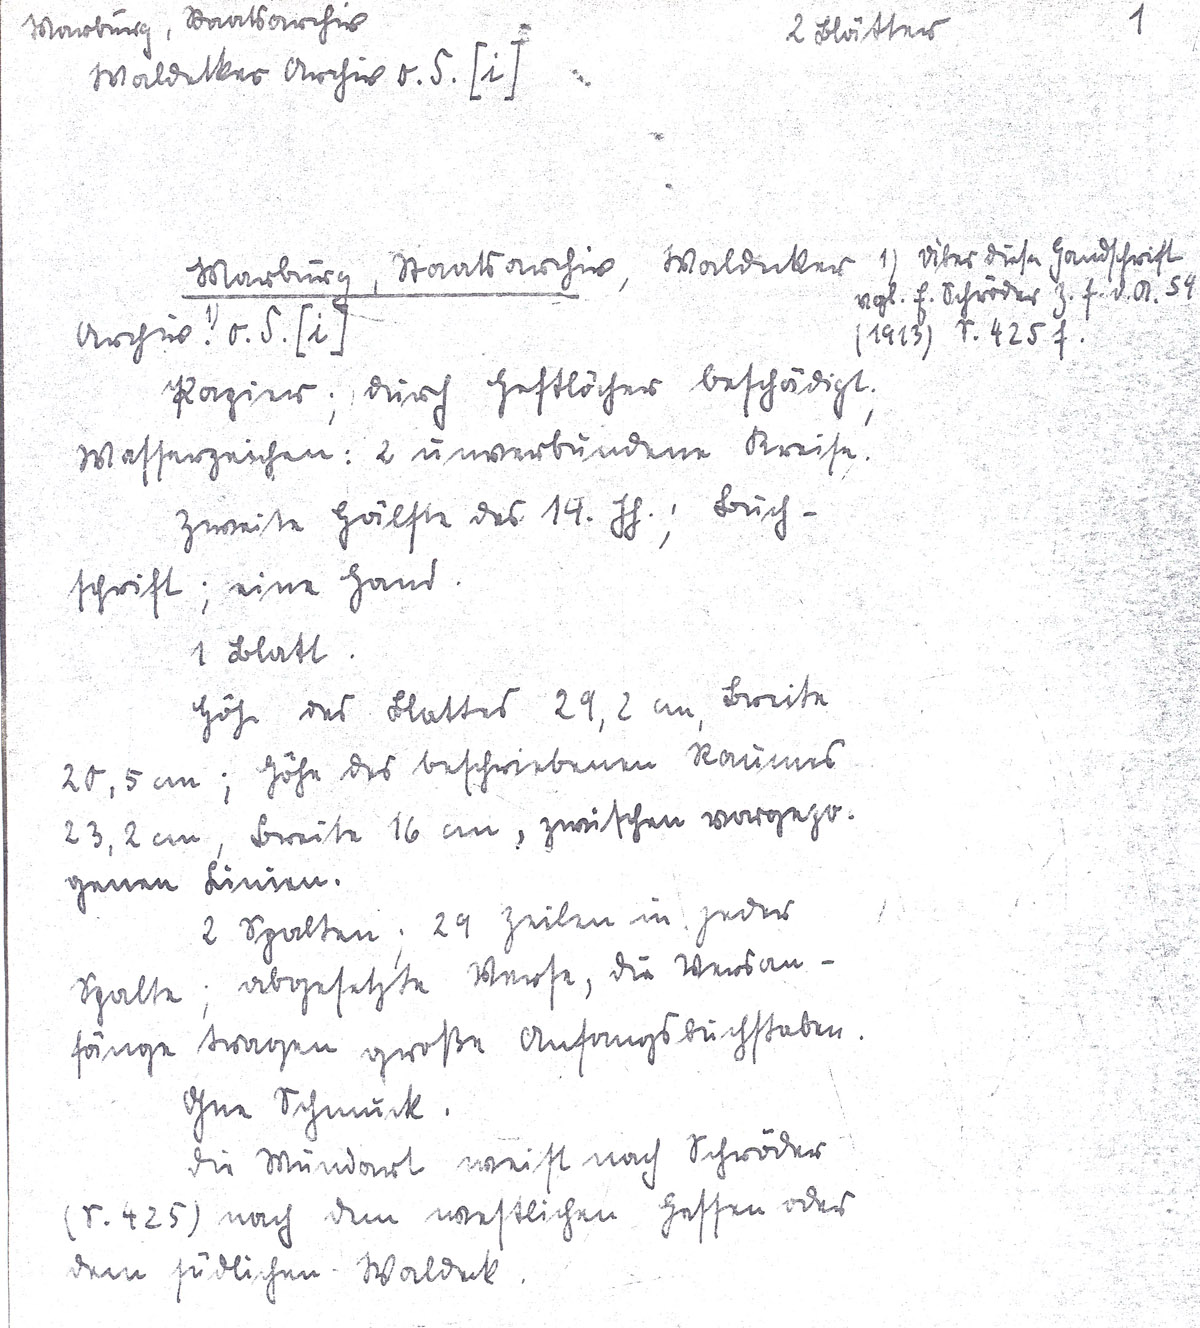 Marburg, Staatsarchiv
2 Blätter
1
Waldecker Archiv o. S. [i]
Marburg, Staatsarchiv, Waldecker
Archiv 1) o. S. [i]
1) Über diese Handschrift
vgl. E. Schröder Z. f. d. A. 54
(1913) S. 425 f.
Papier; durch Heftlöcher beschädigt;
Wasserzeichen: 2 unverbundene Kreise.
Zweite Hälfte des 14. Jh.; Buch-
schrift; eine Hand.
1 Blatt.
Höhe des Blattes 29,2 cm, Breite
20,5 cm; Höhe des beschriebenen Raumes
23,2 cm, Breite 16 cm, zwischen vorgezo-
genen Linien.
2 Spalten; 29 Zeilen in jeder
Spalte; abgesetzte Verse, die Versan-
fänge tragen große Anfangsbuchstaben.
Ohne Schmuck.
Die Mundart weist nach Schröder
(S. 425) nach dem westlichen Hessen oder
dem südlichen Waldeck.